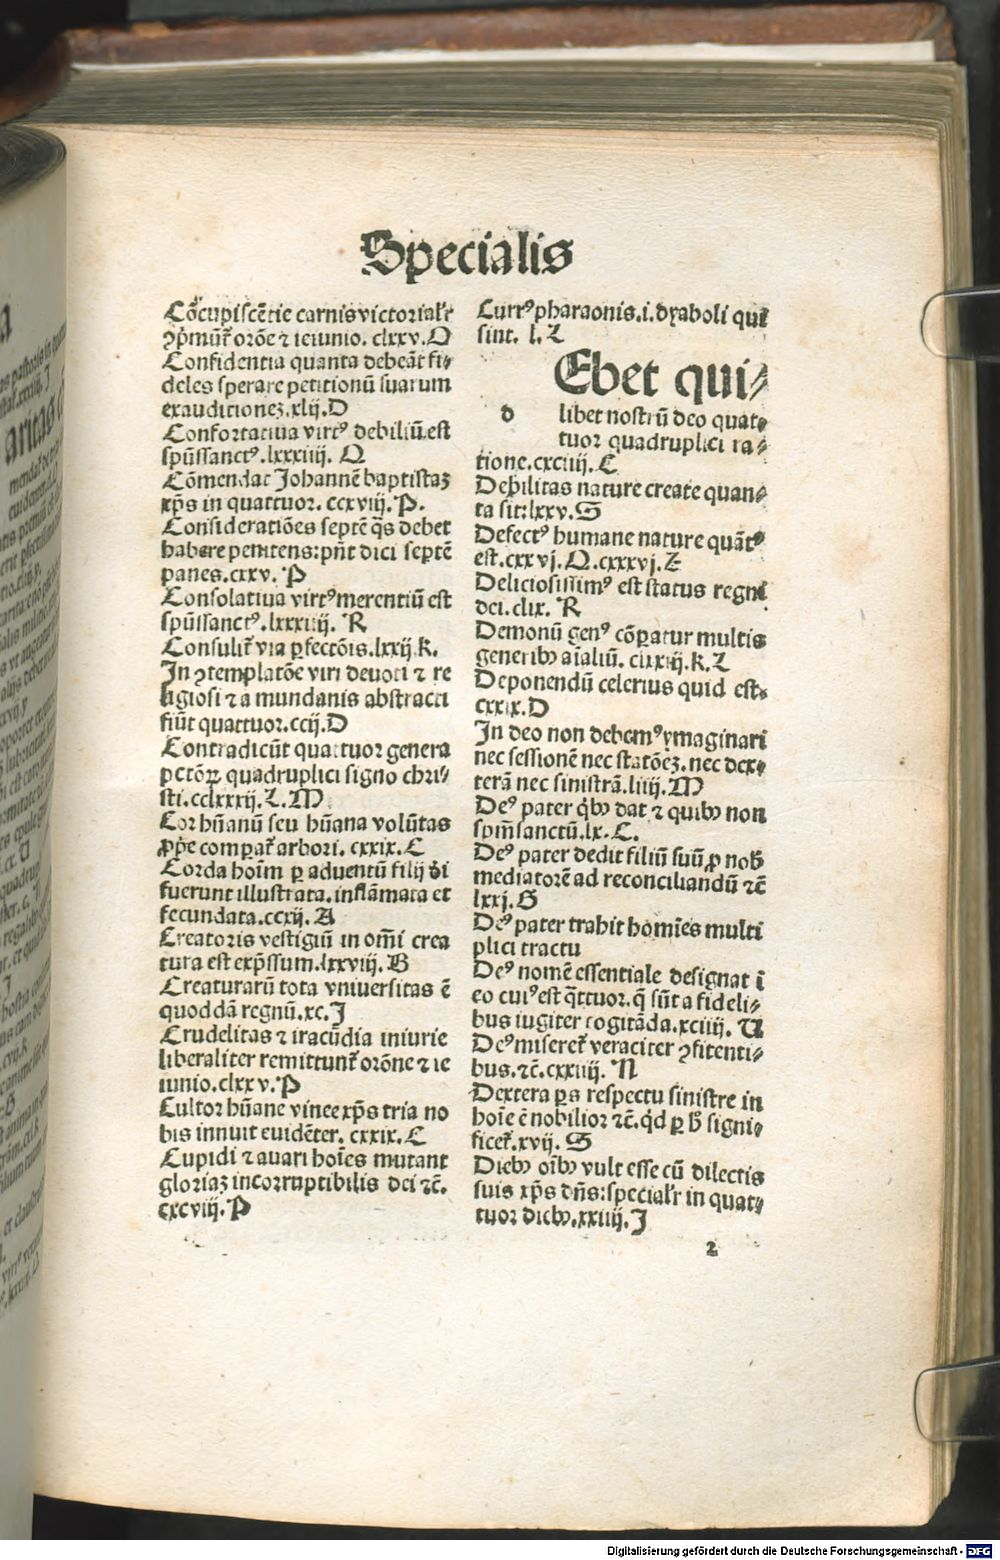 Specialis
Cōcupiscētie carnis victorialr̄
ꝯp̄mūt᷑ orōe ⁊ ieiunio. clxxv.Q
Confidentia quanta debeāt fi⸗
deles sperare petitionū suarum
exauditionez.xlij.D
Confortatiua virtꝰ debiliū.est
spūssanctꝰ.lxxxiiij. Q
Cōmendat Johannē baptistaz
xp̄s in quattuor. ccxviij.P.
Consideratiōes septē q̄s debet
habere penitens:pn̄t dici septē
panes.cxxv. P
Consolatiua virtꝰ merentiū est
spūssanctꝰ.lxxxiiij. R
Consulit᷑ via ꝑfectōis.lxxij.K.
In ꝯtemplatōe viri deuoti ⁊ re
ligiosi ⁊ a mundanis abstracti
fiūt quattuor.ccij.D
Contradicūt quattuor genera
pctōꝝ quadruplici signo chri⸗
sti.cclxxxij.L.M.
Cor hūanū seu hūana volūtas
ꝓpe comparat᷑ arbori. cxxix.C
Corda hoīm ꝑ aduentū filij d̄i
fuerunt illustrata.inflāmata et
fecundata.ccxij.A
Creatoris vestigiū in om̄i crea
tura est exp̄ssum.lxxviij.B
Creaturarū tota vniuersitas ē
quoddā regnū.xc.J
Crudelitas ⁊ iracūdia iniurie
liberaliter remittunt᷑ orōne ⁊ ie
iunio.clxxv.P
Cultor hūane vinee xp̄s tria no
bis innuit euidēter. cxxix.C
Cupidi ⁊ auari hoīes mutant
gloriaz incorruptibilis dei ⁊c̄.
cxcviij.P
Currꝰ pharaonis.i.dyaboli qui
sint. l.L
Ebet qui⸗
d libet nostrū deo quat⸗
tuor quadruplici ra⸗
tione.cxciiij.C
Debilitas nature create quan⸗
ta sit:lxxv.S
Defectꝰ humane nature quātꝰ
est.cxxvj.Q.cxxxvj.Z
Deliciosissimꝰ est status regni
dei.clix. R
Demonū genꝰ cōparatur multis
generibꝰ aīaliū. K.L
Deponendū celerius quid est.
cxxix.D
In deo non debemꝰ ymaginari
nec sessionē nec statōez. nec dex⸗
terā nec sinistrā.liiij.M
Deꝰ pater q̇bꝰ dat ⁊ quibꝰ non
spm̄sanctū.lx.C.
Deꝰ pater dedit filiū suū ꝓ nob̄
mediatorē ad reconciliandū ⁊c̄
lxxj.S
Deꝰ pater trahit homīes multi
plici tractu
Deꝰ nomē essentiale designat ī
eo cuiꝰ est q̄ttuor.q̄ sūt a fideli⸗
bus iugiter cogitāda.xciiij. U
Deꝰ miseret᷑ veraciter ꝯfitenti⸗
bus.⁊c̄.cxxiiij. N
Dextera ꝑs respectu sinistre in
hoīe ē nobilior ⁊c̄.q̇d ꝑ h̄ signi⸗
ficet᷑.xvij. S
Diebꝰ oībꝰ vult esse cū dilectis
suis xp̄s dn̄s:specialr̄ in quat⸗
tuor diebꝰ.xxiiij.J
2
Digitalisierung gefördert durch die Deutsche Forschungsgemeinschaft - DFG